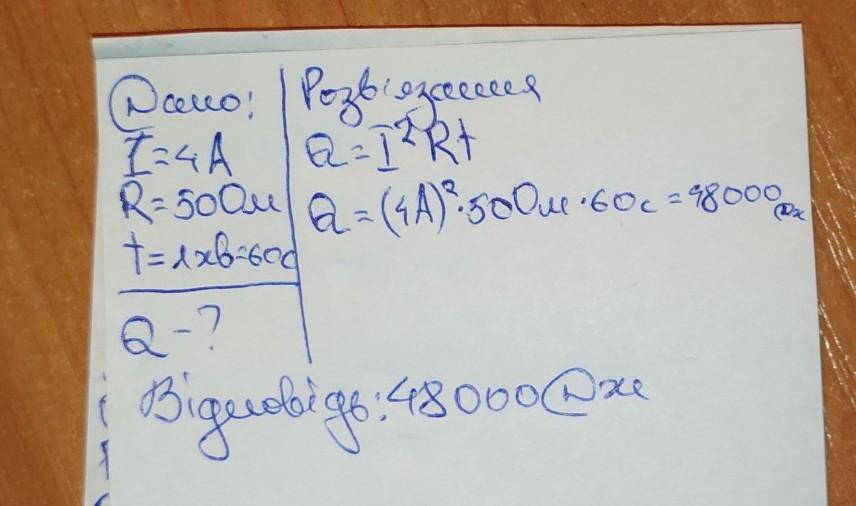 Дано:
I=4А
R=50Ом
t=1хв=60с
Q-?
Розв'язання
Q=I²Rt
Q=(4А)²·50Ом·60с=48000Дж
Відповідь:48000Дж